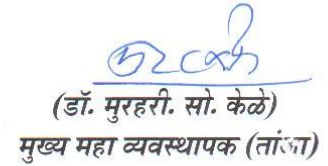 (डॉ. मुरहरी. सो. केळे)
मुख्य महा व्यवस्थापक